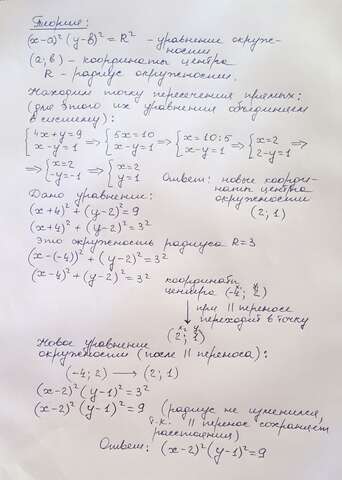 Теория:
(x-a)² (y-b)² = R² - уравнение окруж-
ности
(a; b) - координаты центра
R - радиус окружности.
Находим точку пересечения прямых:
(для этого их уравнения объединяем
в систему):
{4x+y=9 x-y=1 ⇒ {5x=10 x-y=1 ⇒ {x=10:5 x-y=1 ⇒ {x=2 2-y=1 ⇒
⇒ {x=2 -y=-1 ⇒ {x=2 y=1 Ответ: новые коорди-
наты центра
окружности
(2; 1)
Дано уравнение:
(x+4)² + (y-2)² = 9
(x+4)² + (y-2)² = 3²
это окружность радиуса R=3
(x-(-4))² + (y-2)² = 3²
(x-4)² + (y-2)² = 3² координаты
центра (-4; 2)
при || переносе
переходит в точку
x y
(2; 1)
Новое уравнение
окружности (после || переноса):
(-4; 2) → (2; 1)
(x-2)² (y-1)² = 3²
(x-2)² (y-1)² = 9 (радиус не изменился,
т.к. || перенос сохраняет
расстояния)
Ответ: (x-2)² (y-1)² = 9